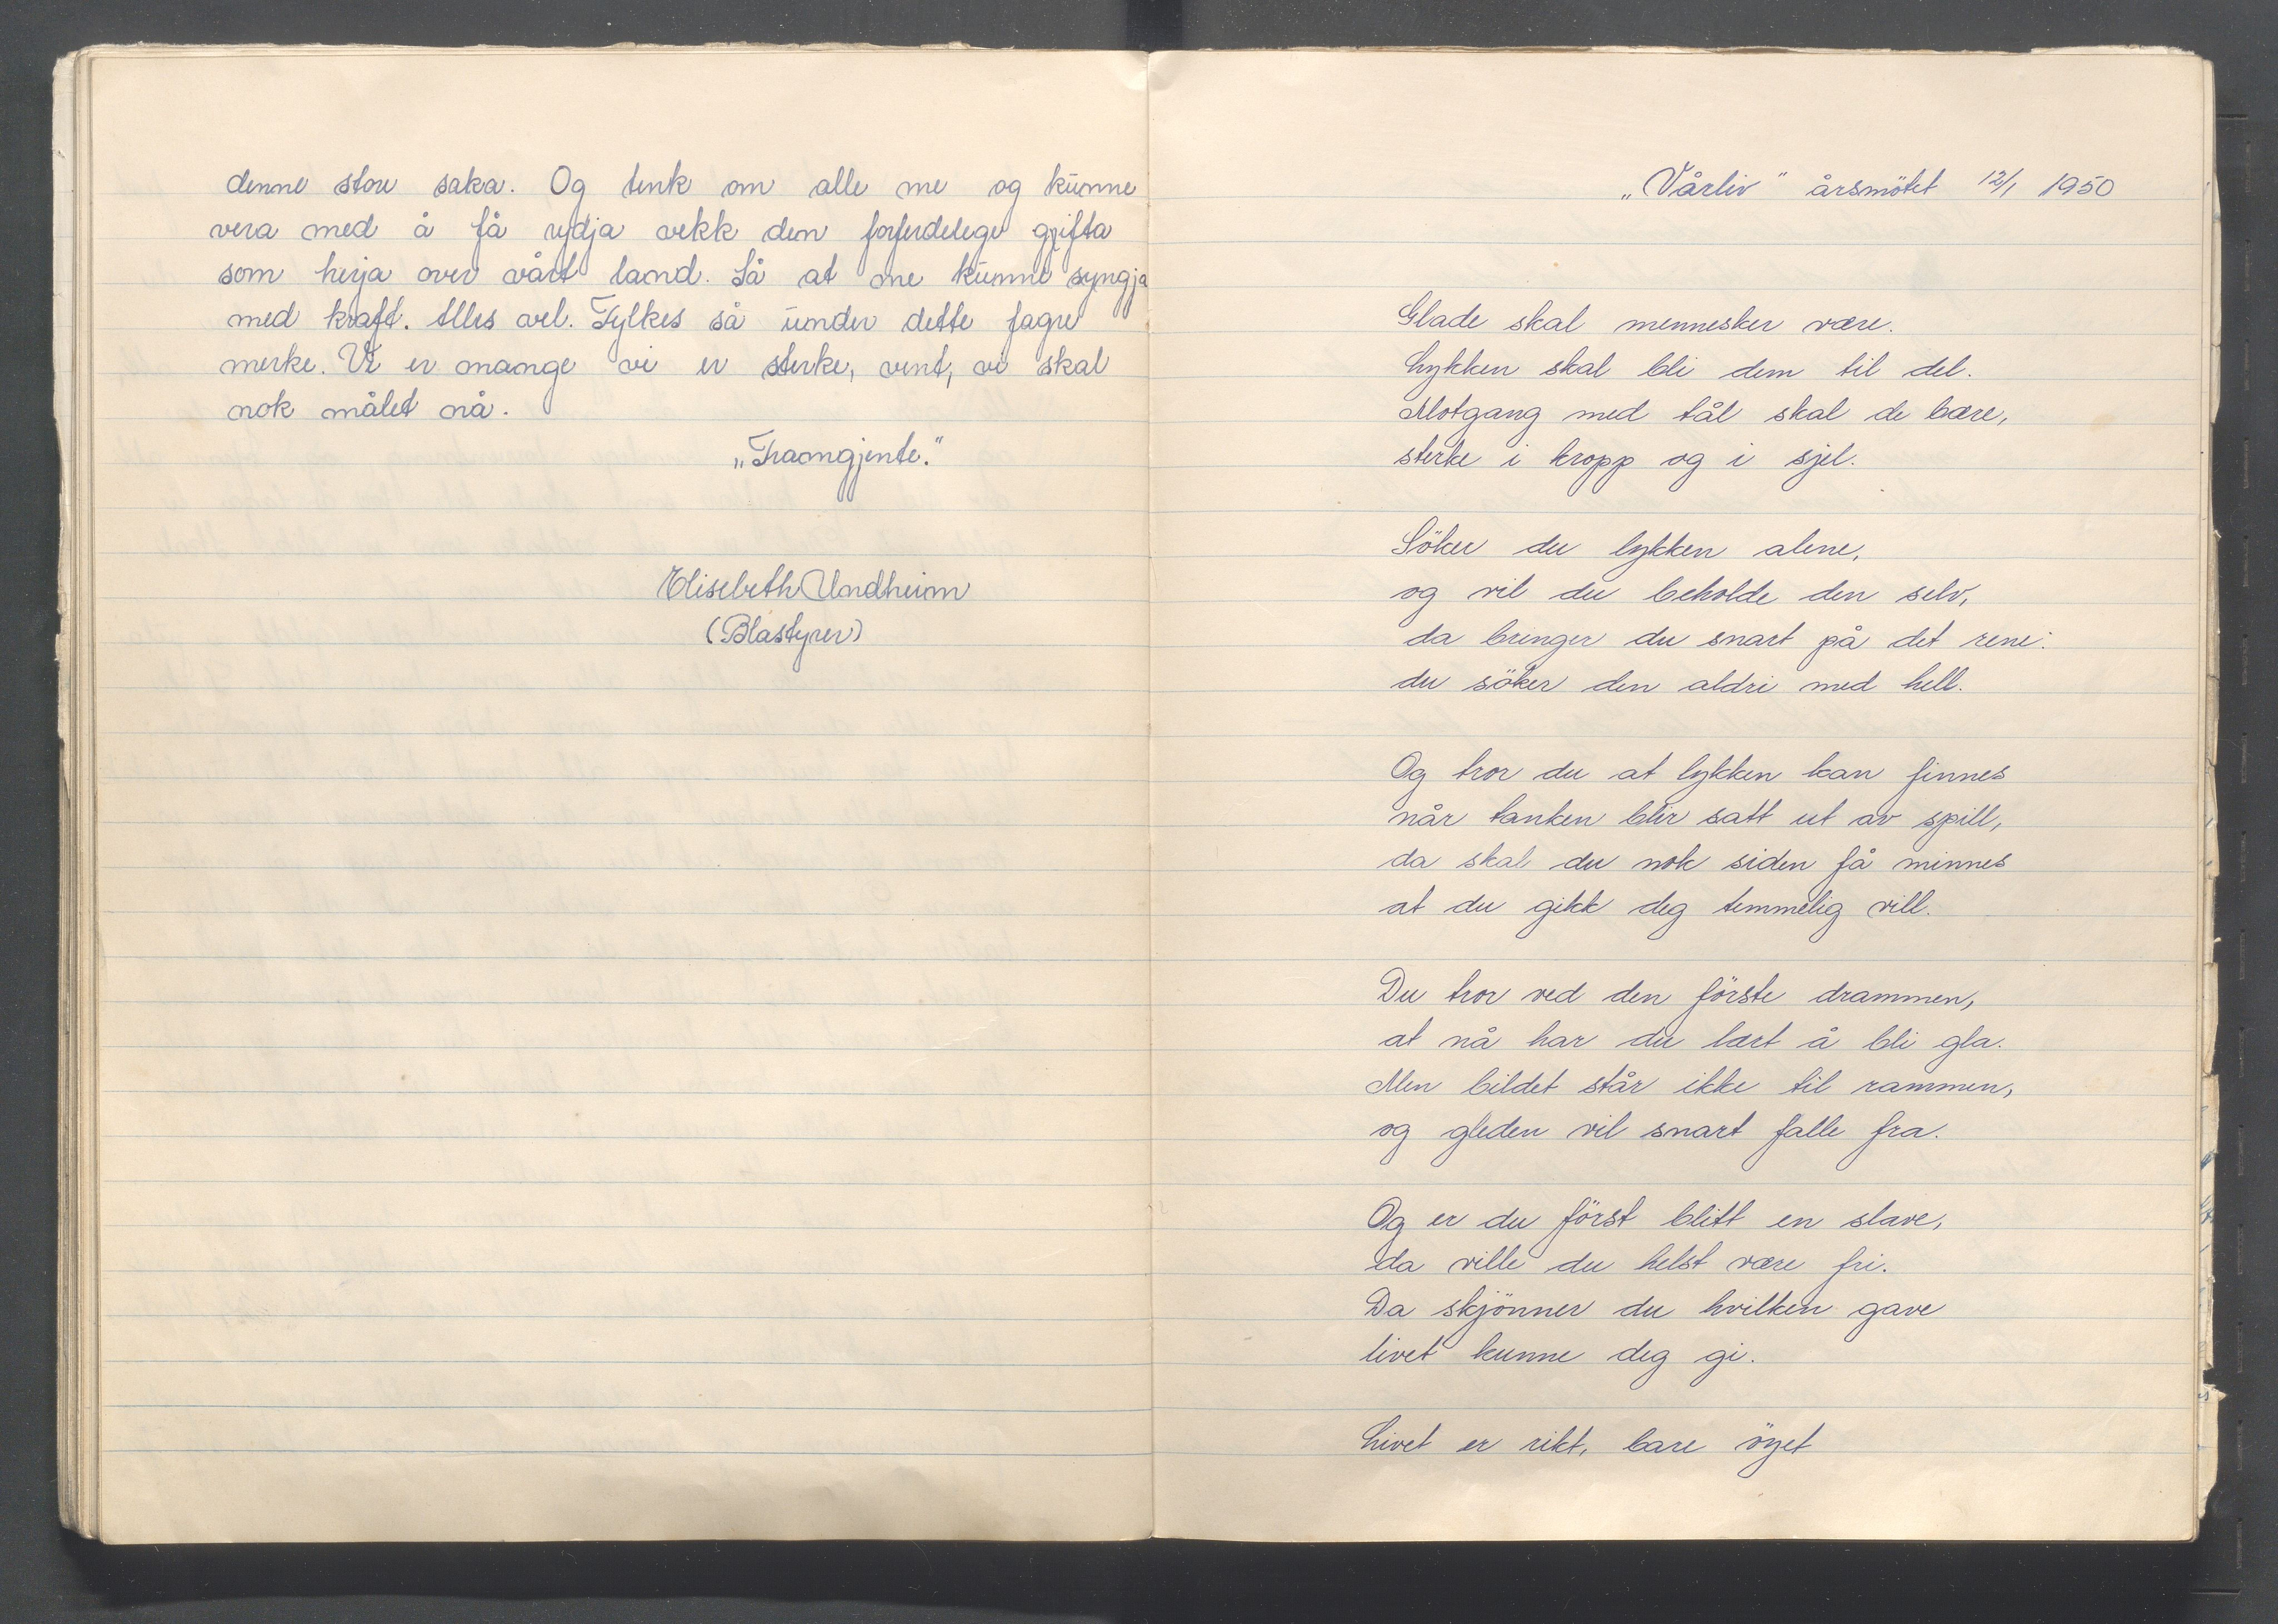 denne store saka. Og tenk om alle me og kunne
vera med å få rydja vekk den forferdelege gjifta
som herja over vårt land. Så at me kunne syngja
med kraft. Alles vel. Fylkes så under dette fagre
merke. Vi er mange vi er sterke, vent, vi skal
nok målet nå.
„Framgjente."
Elisebeth Undheim
(Blastyrer)
„Vårliv" årsmötet 12/1 1950
Glade skal mennesker være.
Lykken skal bli dem til del.
Motgang med tål skal de bære,
sterke i kropp og i sjel.
Söker du lykken alene,
og vil du beholde den selv,
da bringer du snart på det rene:
du söker den aldri med hell.
Og tror du at lykken kan finnes
når tanken blir satt ut av spill,
da skal du nok siden få minnes
at du gikk deg temmelig vill.
Du tror ved den förste drammen,
at nå har du lært å bli gla.
Men bildet står ikke til rammen,
og gleden vil snart falle fra.
Og er du först blitt en slave,
da ville du helst være fri.
Da skjönner du hvilken gave
livet kunne deg gi.
Livet er rikt, bare öyet